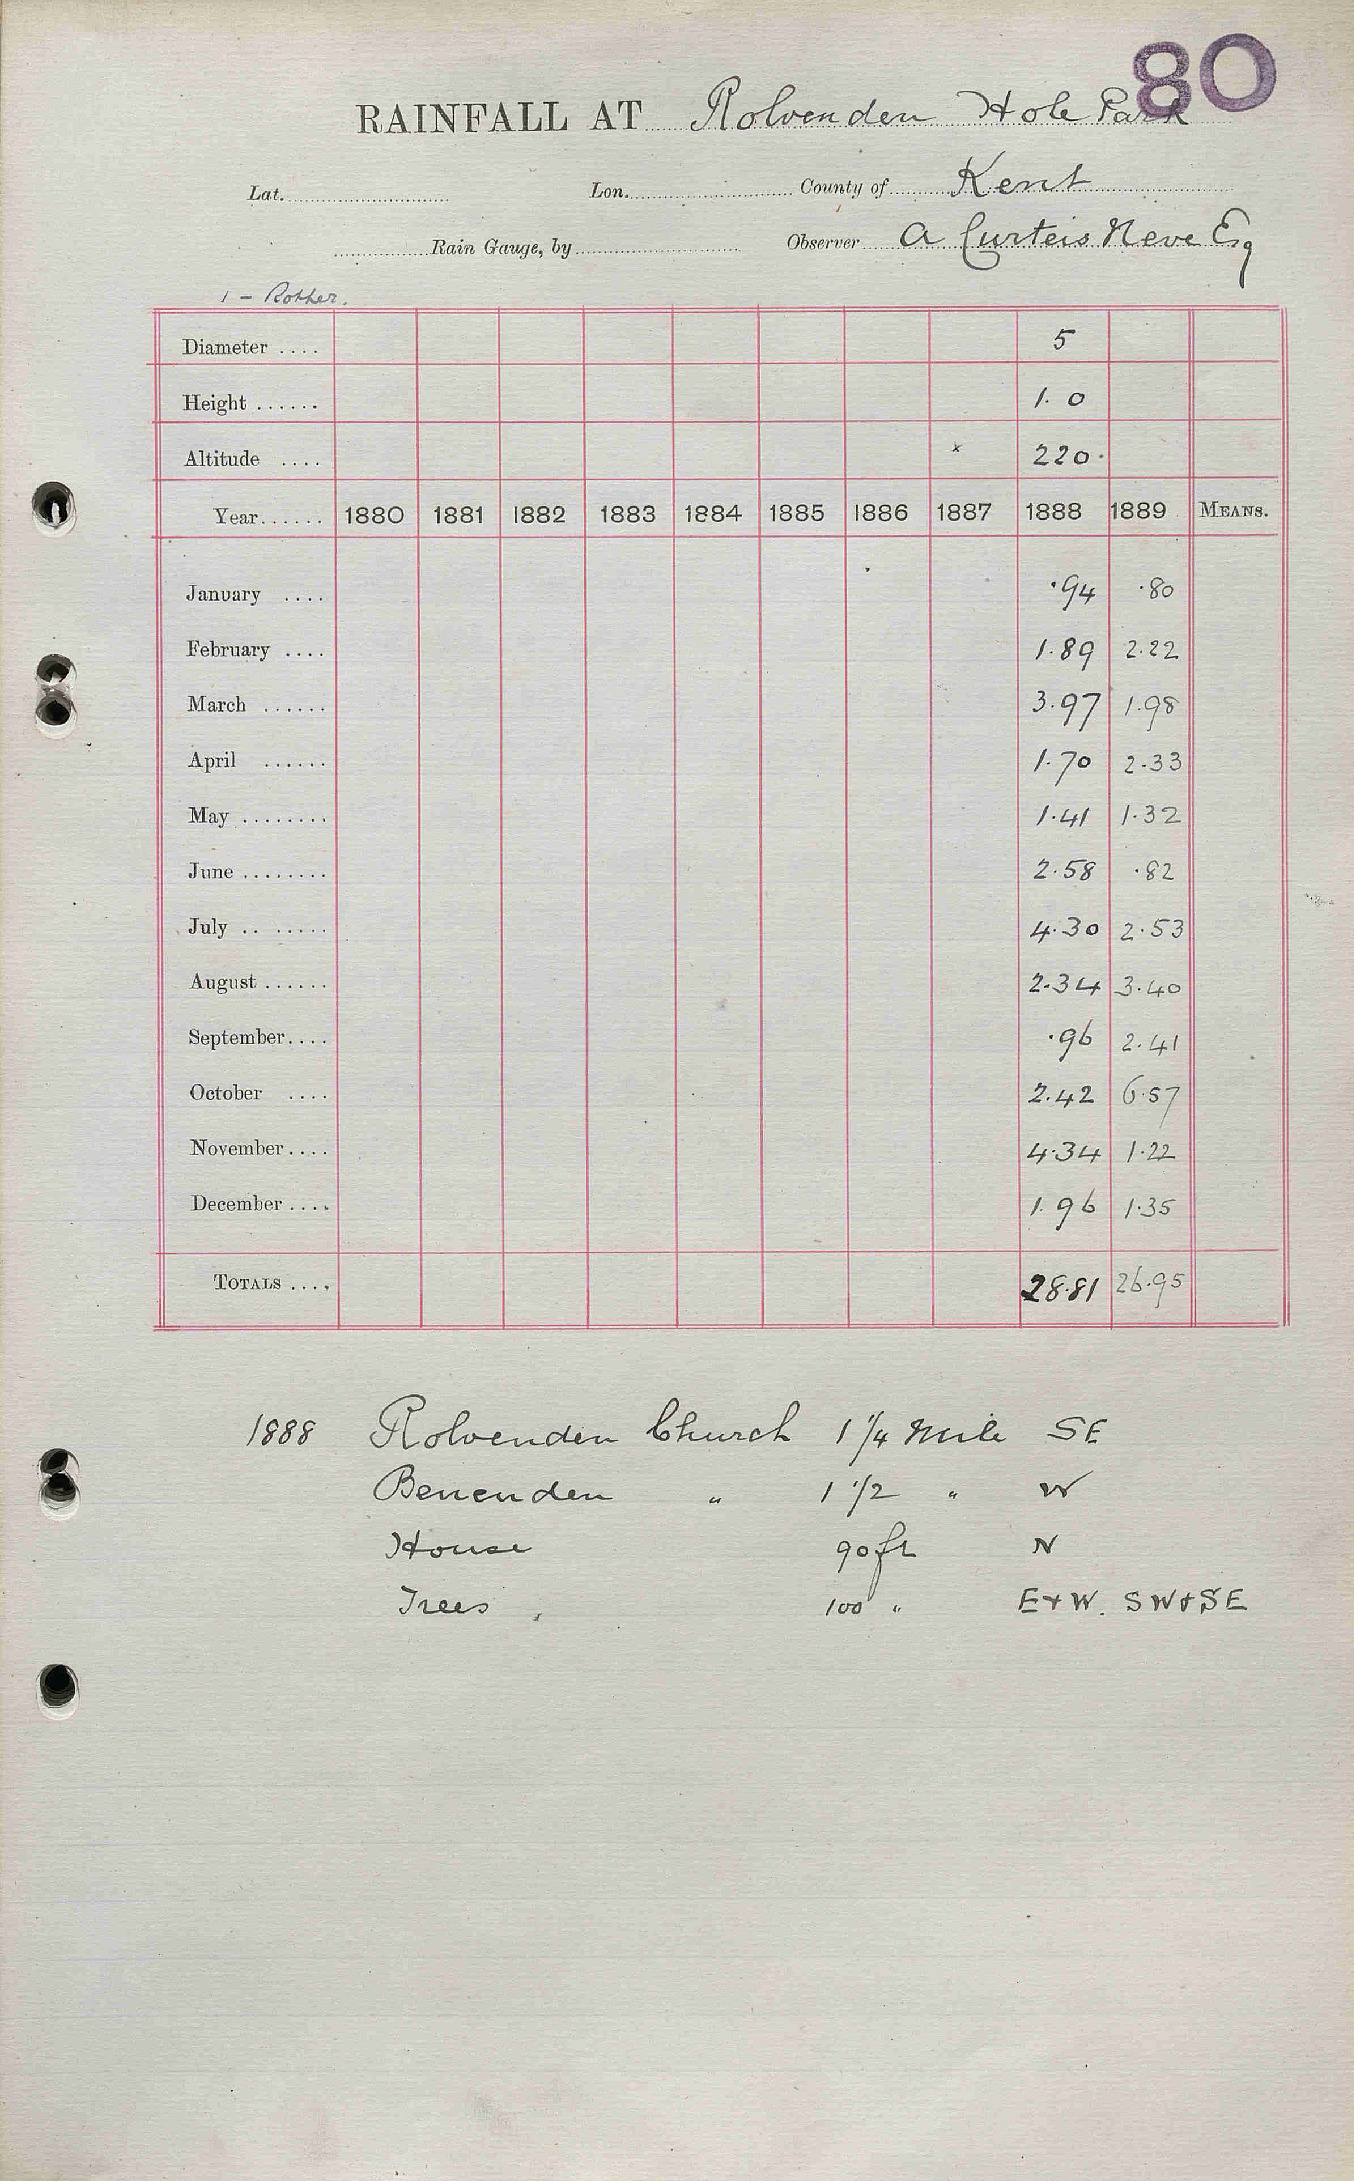 80
RAINFALL AT Rolvenden Hole Park
Lat. Lon. County of Kent
Rain Gauge, by Observer A Curteis Neve Esq
1 – Rother.
Diameter .... 5
Height ...... 1. 0
Altitude .... x 220.
Year...... 1880 1881 1882 1883 1884 1885 1886 1887 1888 1889 MEANS.
January .... .94 .80
February .... 1.89 2.22
March ...... 3.97 1.98
April ...... 1.70 2.33
May ........ 1.41 1.32
June ........ 2.58 .82
July .. ...... 4.30 2.53
August ...... 2.34 3.40
September.... .96 2.41
October .... 2.42 6.57
November .... 4.34 1.22
December .... 1.96 1.35
TOTALS .... 28.81 26.95
1888 Rolvenden Church 1 1/4 Mile SE
Benenden " 1 1/2 " W
House 90 ft N
Trees 100 " E+W. SW+SE